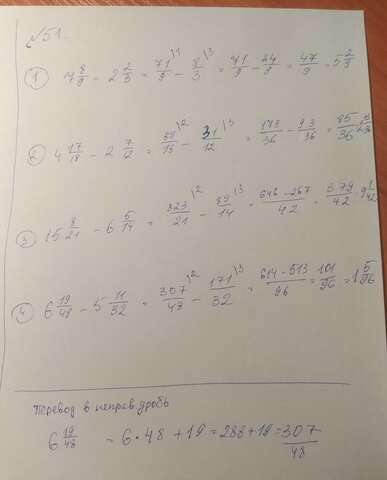 № 51.
① 7 8/9 - 2 2/3 = 71/9 \1 - 8/3 \3 = 71/9 - 24/9 = 47/9 = 5 2/9
② 4 17/18 - 2 7/12 = 89/18 \2 - 31/12 \3 = 178/36 - 93/36 = 85/36
③ 15 8/21 - 6 5/14 = 323/21 \2 - 89/14 \3 = 646 - 267/42 = 379/42 = 9 1/42
④ 6 19/48 - 5 11/32 = 307/48 \2 - 171/32 \3 = 614 - 513/96 = 101/96 = 1 5/96
Перевод в неправ. дробь
6 19/48 = 6 · 48 + 19 = 288 + 19 = 307/48